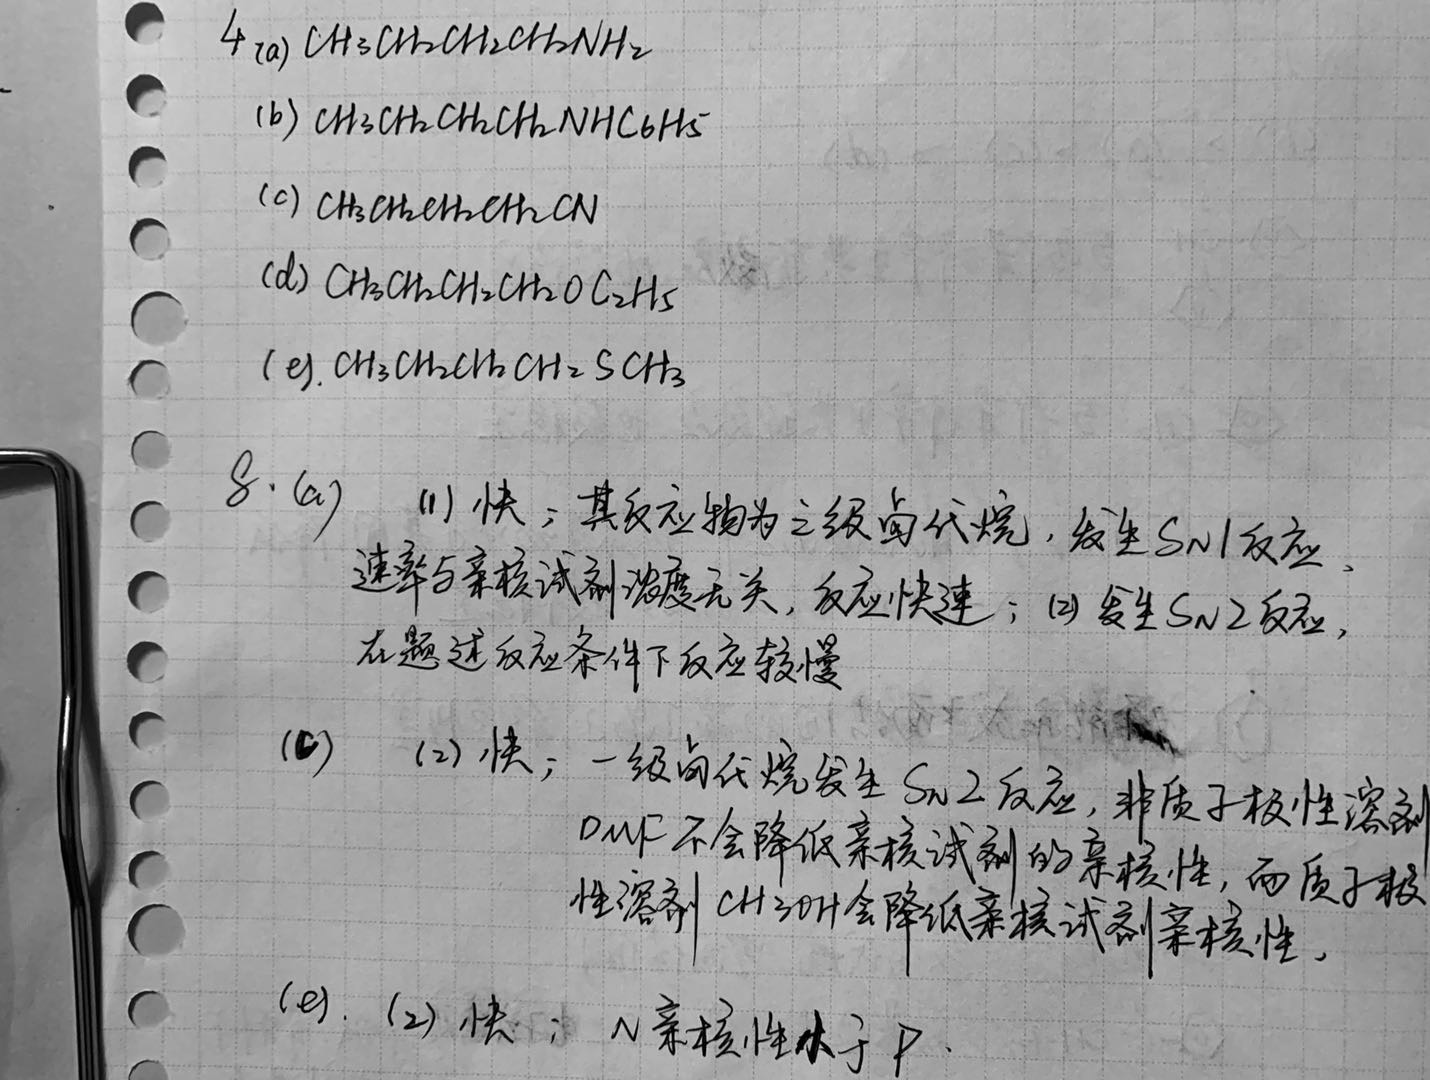 4 (a) CH3CH2CH2CH2NH2
(b) CH3CH2CH2CH2NHC6H5
(c) CH3CH2CH2CH2CN
(d) CH3CH2CH2CH2OC2H5
(e). CH3CH2CH2CH2SCH3
8. (a) (1) 快; 其反应物为三级卤代烷, 发生SN1反应,
速率与亲核试剂浓度无关, 反应快速; (2) 发生SN2反应,
在题述反应条件下反应较慢
(c) (2) 快; 一级卤代烷发生SN2反应, 非质子极性溶剂
DMF不会降低亲核试剂的亲核性, 而质子极
性溶剂CH3OH会降低亲核试剂亲核性.
(e). (2) 快; N亲核性小于P.